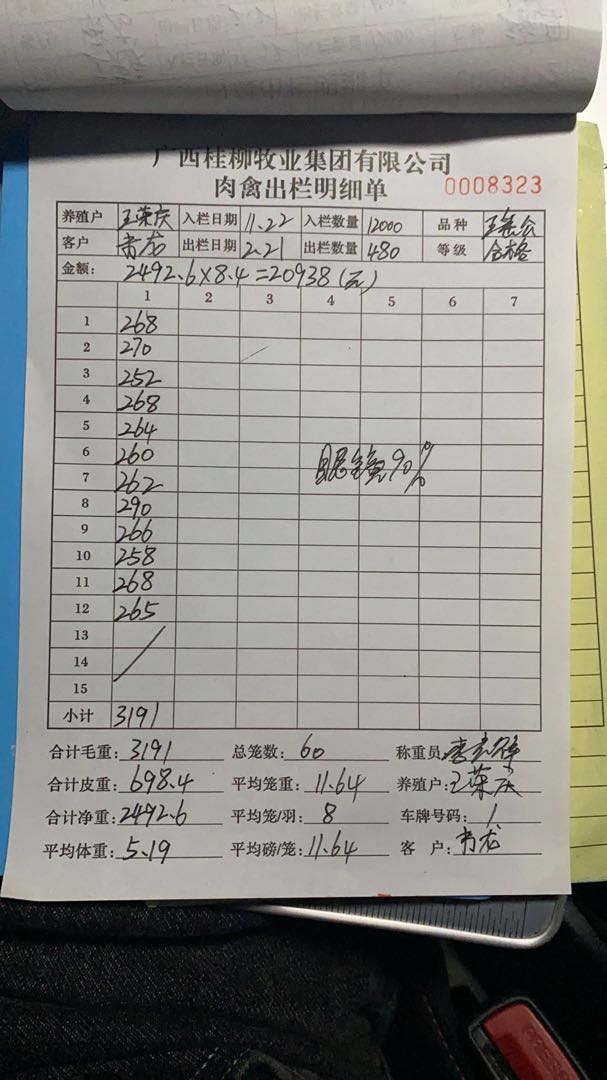 广西桂柳牧业集团有限公司
肉禽出栏明细单 0008323
养殖户 王荣庆 入栏日期 11.22 入栏数量 12000 品种
客户 青龙 出栏日期 2.21 出栏数量 480 等级 合格
金额: 2492.6×8.4=20938(元)
1 2 3 4 5 6 7
1 268
2 270
3 252
4 268
5 264
6 260
7 262
8 290
9 266
10 258
11 268
12 265
13
14
15
90%
小计 3191
合计毛重: 3191 总笼数: 60 称重员:
合计皮重: 698.4 平均笼重: 11.64 养殖户: 王荣庆
合计净重: 2492.6 平均笼/羽: 8 车牌号码: 1
平均体重: 5.19 平均磅/笼: 11.64 客 户: 青龙